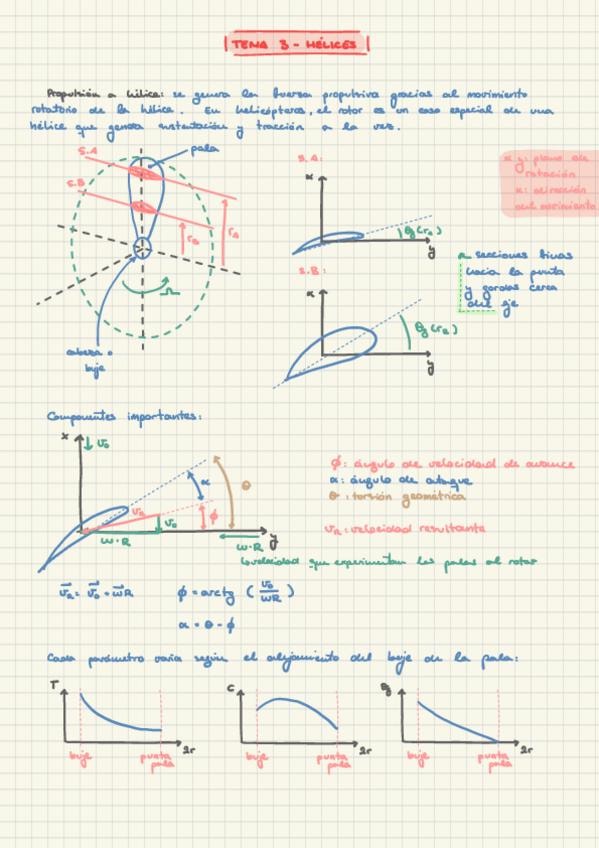 TEMA 3 - HÉLICES
Propulsión a hélice: se genera la fuerza propulsiva gracias al movimiento
rotatorio de la hélice. En helicópteros, el rotor es un caso especial de una
hélice que genera sustentación y tracción a la vez.
S.A
pala
S.B
r_B
r_A
Ω
cabeza o
buje
S.A:
x
θg(r_A)
y
S.B:
x
θg(r_B)
y
x y: plano de
rotación
x: dirección
del movimiento
secciones finas
hacia la punta
y gordas cerca
del eje
Componentes importantes:
x
v₀
α
θ
v_R
v₀
ϕ
ω·R
y
ω·R
velocidad que experimentan las palas al rotar
ϕ: ángulo de velocidad de avance
α: ángulo de ataque
θ: torsión geométrica
v_R: velocidad resultante
v_R = v₀ + ωR
ϕ = arctg (v₀/ωR)
α = θ - ϕ
Cada parámetro varía según el alejamiento del buje de la pala:
T
buje
punta
pala
2r
C
buje
punta
pala
2r
θg
buje
punta
pala
2r